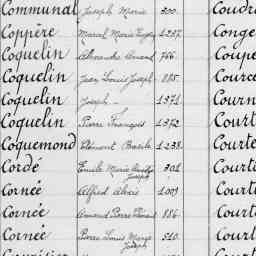 Communal Joseph Marie 200. Coudr
Coppère Marcel Marie Eugène 1287. Conge
Coquelin Alexandre Armand 766. Coupe
Coquelin Jean Louis Joseph 885. Cource
Coquelin Joseph 1371. Courn
Coquelin Pierre François 1372. Courte
Coquemond Clément Basile 1238. Courte
Cordé Emile Marie Joseph 301. Courte
Cornée Alfred Alexis 1009. Court
Cornée Armand Pierre 886. Court
Cornée Pierre Louis Marie Joseph 510. Court